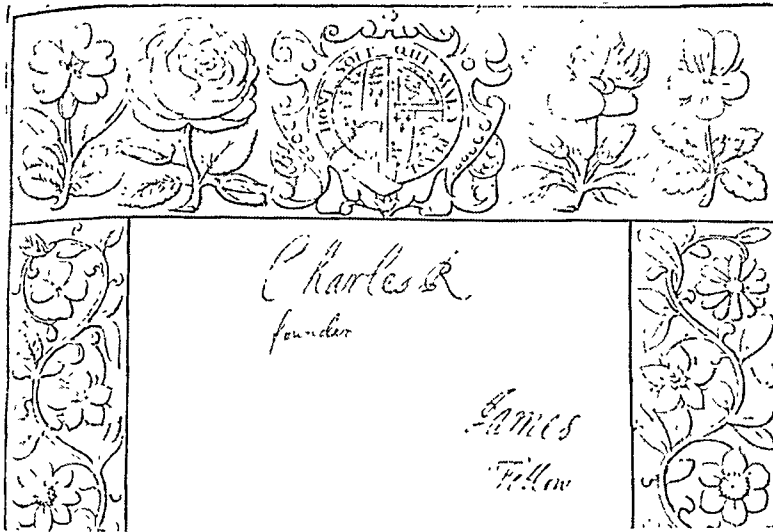 HONI SOIT QUI MAL Y
Charles R.
founder
James
Fellow